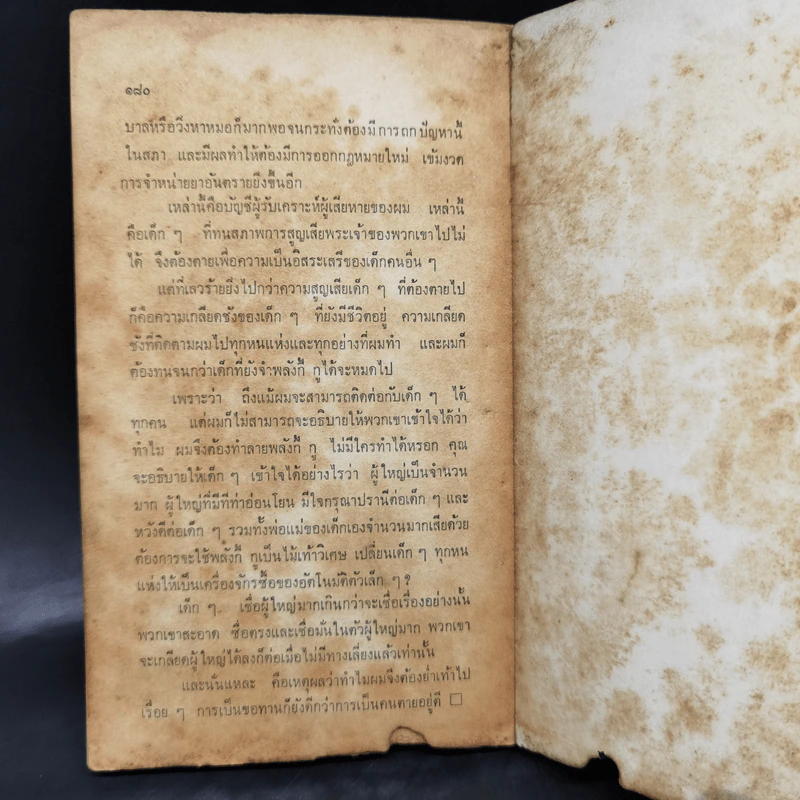 ๑๘๐
บาลหรือวิ่งหาหมอก็มากพอจนกระทั่งต้องมีการถกปัญหานี้
ในสภา และมีผลทำให้ต้องมีการออกกฎหมายใหม่ เข้มงวด
การจำหน่ายยาอันตรายยิ่งขึ้นอีก
เหล่านี้คือบัญชีผู้รับเคราะห์ผู้เสียหายของผม เหล่านี้
คือเด็ก ๆ ที่ทนสภาพการสูญเสียพระเจ้าของพวกเขาไปไม่
ได้ จึงต้องตายเพื่อความเป็นอิสระเสรีของเด็กคนอื่น ๆ
แต่ที่เลวร้ายยิ่งไปกว่าความสูญเสียเด็ก ๆ ที่ต้องตายไป
ก็คือความเกลียดชังของเด็ก ๆ ที่ยังมีชีวิตอยู่ ความเกลียด
ชังที่ติดตามผมไปทุกหนแห่งและทุกอย่างที่ผมทำ และผมก็
ต้องทนจนกว่าเด็กที่ยังจำพลังกี้ กูได้จะหมดไป
เพราะว่า ถึงแม้ผมจะสามารถติดต่อกับเด็ก ๆ ได้
ทุกคน แต่ผมก็ไม่สามารถจะอธิบายให้พวกเขาเข้าใจได้ว่า
ทำไม ผมจึงต้องทำลายพลังกี้ กู ไม่มีใครทำได้หรอก คุณ
จะอธิบายให้เด็ก ๆ เข้าใจได้อย่างไรว่า ผู้ใหญ่เป็นจำนวน
มาก ผู้ใหญ่ที่มีทีท่าอ่อนโยน มีใจกรุณาปรานีต่อเด็ก ๆ และ
หวังดีต่อเด็ก ๆ รวมทั้งพ่อแม่ของเด็กเองจำนวนมากเสียด้วย
ต้องการจะใช้พลังกี้ กูเป็นไม้เท้าวิเศษ เปลี่ยนเด็ก ๆ ทุกหน
แห่งให้เป็นเครื่องจักรซื้อของอัตโนมัติตัวเล็ก ๆ ?
เด็ก ๆ เชื่อผู้ใหญ่มากเกินกว่าจะเชื่อเรื่องอย่างนั้น
พวกเขาสะอาด ซื่อตรงและเชื่อมั่นในตัวผู้ใหญ่มาก พวกเขา
จะเกลียดผู้ใหญ่ได้ลงก็ต่อเมื่อไม่มีทางเลี่ยงแล้วเท่านั้น
และนั่นแหละ คือเหตุผลว่าทำไมผมจึงต้องย่ำเท้าไป
เรื่อย ๆ การเป็นขอทานก็ยังดีกว่าการเป็นคนตายอยู่ดี □